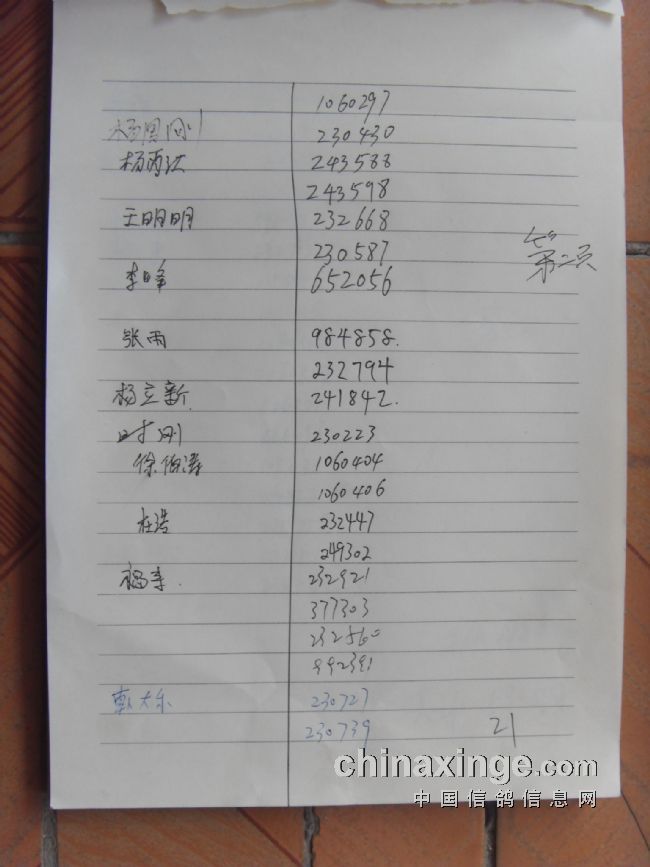 1060297
杨国刚 230430
杨丙江 243588
243598
王明明 232668
230587
第二页
李峰 652056
张雨 984858.
232794
杨立新. 241842.
时刚 230223
徐伯涛 1060404
1060406
杜浩 232447
249302
福丰. 232921
377303
232560
992391
230727
230739
21
chinaxinge.com
中国信鸽信息网